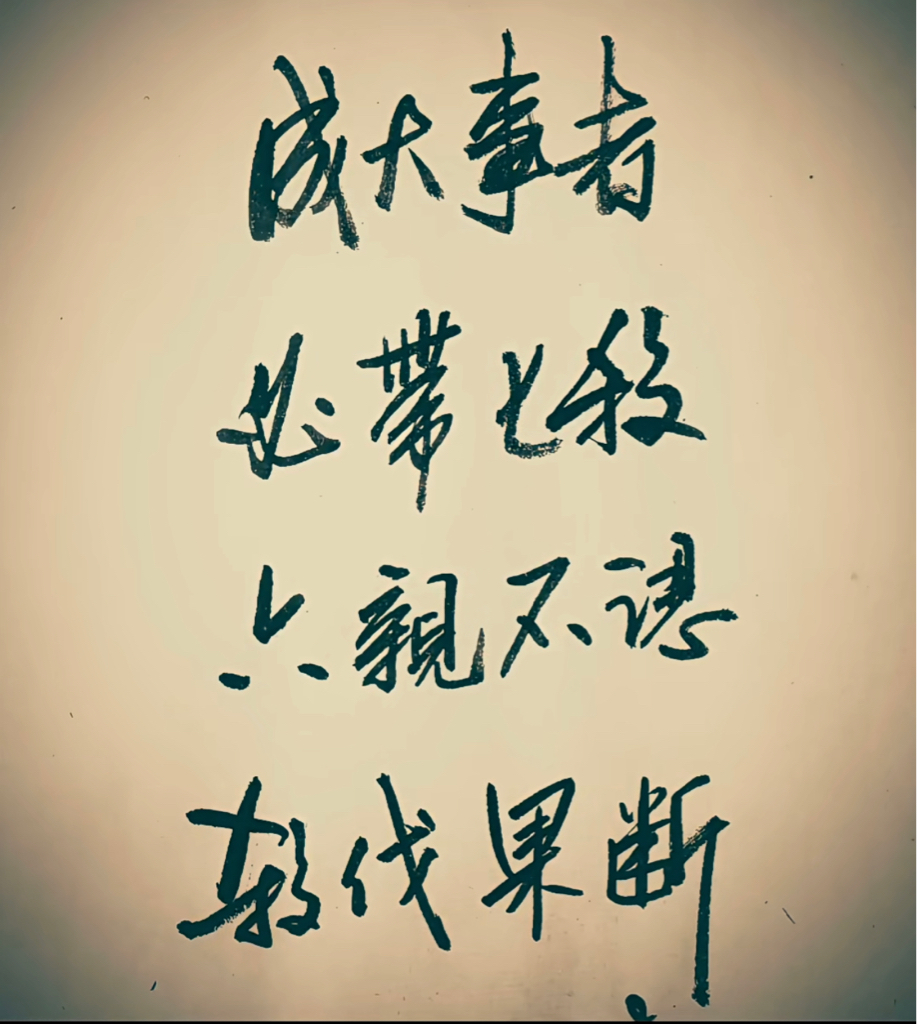 成大事者
必帶七殺
六親不認
殺伐果断